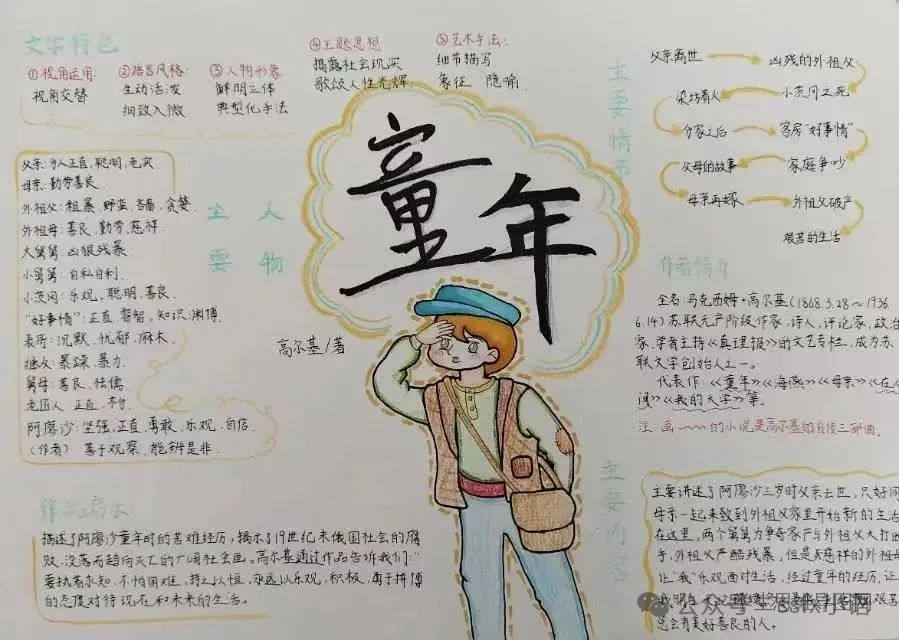 文字特色
①视角运用:
视角交替
②语言风格:
生动活泼
细致入微
③人物形象
鲜明立体
典型化手法
④主题思想
揭露社会现实
歌颂人性光辉.
⑤艺术手法:
细节描写
象征 隐喻
童年
高尔基/著
主要人物
父亲:为人正直,聪明,老实
母亲:勤劳善良
外祖父:粗暴 野蛮 吝啬 贪婪
外祖母:善良,勤劳,慈祥
大舅舅:凶狠残暴
小舅舅:自私自利
小茨冈:乐观,聪明,善良.
"好事情":正直 睿智,知识渊博
表哥:沉默 忧郁 麻木
继父:暴躁 暴力
舅母:善良 怯懦
老匠人 正直
阿廖沙:坚强,正直 勇敢,乐观,自信
(作者) 善于观察,能辨是非.
主要情节
父亲离世
凶残的外祖父
小茨冈之死
染坊着火
分家之后
客房"好事情"
家庭争吵
父母的故事
母亲再嫁
外祖父破产
艰苦的生活
作者简介
全名:马克西姆·高尔基(1868.3.28~1936
6.14)苏联无产阶级作家,诗人,评论家,政治
家,学者主持《真理报》的文艺专栏,成为苏
联文学创始人之一。
代表作:《童年》《海燕》《母亲》《在人
间》《我的大学》等.
注 画﹏﹏的小说是高尔基的自传三部曲.
主要内容
主要讲述了阿廖沙三岁时父亲去世,只好同
母亲一起来致到外祖父家里开始新的生活
在这里,两个舅舅为争夺家产与外祖父大打出
手,外祖父严酷残暴,但是是慈祥的外祖母
让"我"乐观面对生活,经过童年的经历,让
我明白
总会有美好善良的人。
描述了阿廖沙童年时的苦难经历,揭示了19世纪末俄国社会的腐
败,没落而趋向灭亡的广阔社会画。高尔基通过作品告诉我们:
要执着求知,不怕困难,持之以恒,永远以乐观,积极,勇于拼博
的态度对待现在和未来的生活。
公众号